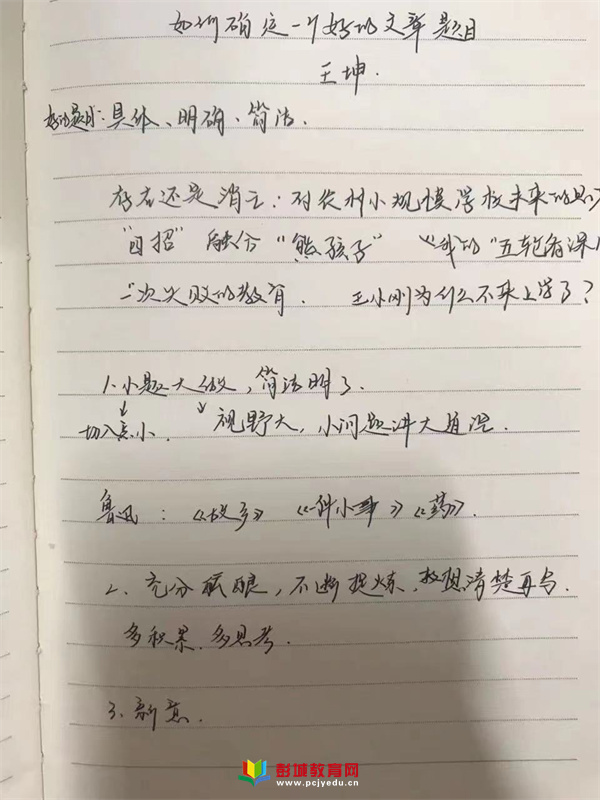 如何确定一个好的文章题目
王坤.
好的题目:具体、明确、简洁.
存在还是消亡:对农村小规模学校未来的思
"自招" 融合 "熊孩子" 《我的"五轮看课
一次失败的教育. 王小刚为什么不来上学了?
1.小题大做,简洁明了.
切入点小. 视野大,小问题讲大道理.
鲁迅:《故乡》《一件小事》《药》.
2.充分酝酿,不断提炼,想清楚再写.
多积累.多思考.
3.新意.
彭城教育网
www.pcjyedu.cn